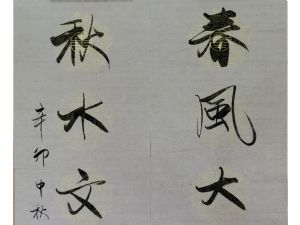 春風大
秋水文
辛卯中秋